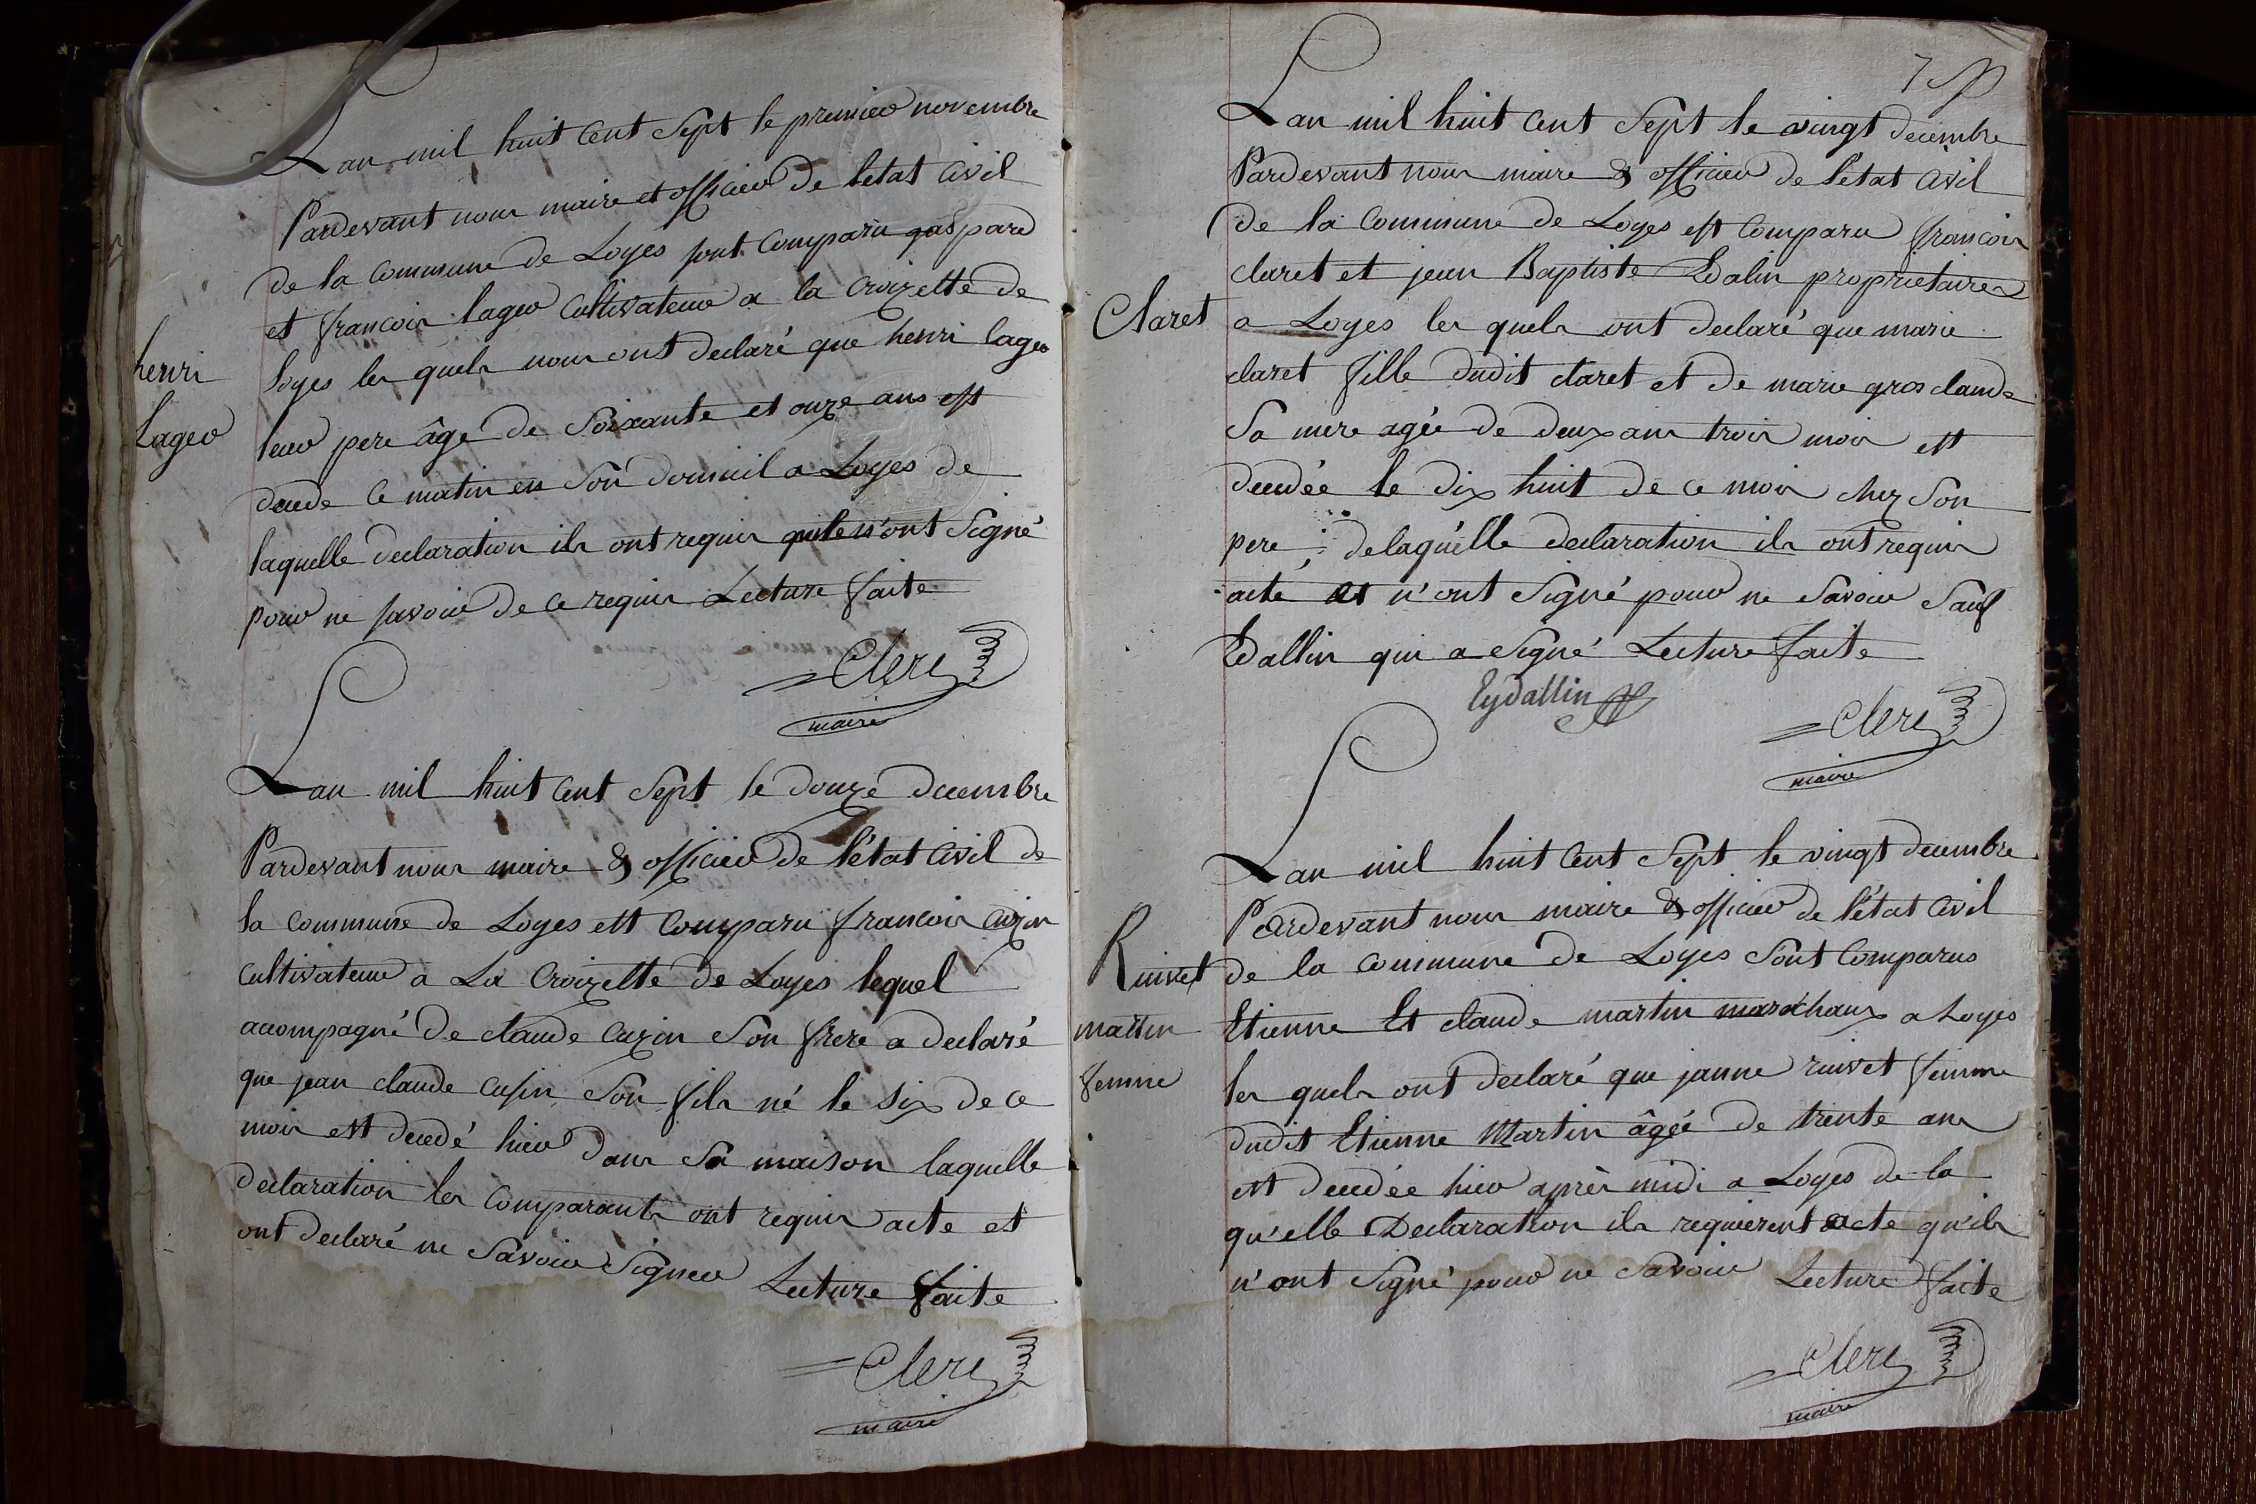 Lan mil huit cent sept le premier novembre
Pardevant nous maire et officier de letat civil
de la commune de Loyes sont comparu gaspard
et francois lager cultivateur a la croizette de
henri
loyes les quels nous ont declaré que henri lager
Lager
leur pere âgé de soixante et onze ans est
decede ce matin en son domicil a Loyes de
laquelle declaration ils ont requis quils n'ont signé
pour ne savoir de ce requis Lecture faite
Clerc
maire
Lan mil huit cent sept le douze decembre
Pardevant nous maire & officier de l'état civil de
la commune de Loyes est comparu francois cuzin
cultivateur a La croizette de Loyes lequel
acompagné de claude cuzin son frere a declaré
que jean claude cusin son fils né le six de ce
mois est decedé hier dans sa maison laquelle
declaration les comparants ont requis acte et
ont declaré ne savoir signer Lecture faite
Clerc
maire
7
Lan mil huit cent sept le vingt decembre
Pardevant nous maire & officier de l'état civil
de la commune de Loyes est comparu francois
claret et jean Baptiste Edalin proprietaires
Claret
a Loyes les quels ont declaré que marie
claret fille dudit claret et de marie gros claude
sa mere agée de deux ans trois mois est
decedée le dix huit de ce mois chez son
pere ; de laquelle declaration ils ont requis
acte et n'ont signé pour ne savoir sauf
Edallin qui a signé Lecture faite
Eydallin
Clerc
maire
Lan mil huit cent sept le vingt decembre
Pardevant nous maire & officier de l'état civil
Ruivet
de la commune de Loyes sont comparus
martin
Etienne Et claude martin maréchaux a Loyes
femme
les quels ont declaré que janne ruivet femme
dudit Etienne Martin âgée de trente ans
est decedée hier après midi a Loyes de la
qu'elle Declaration ils requierent acte qu'ils
n'ont signé pour ne savoir Lecture faite
Clerc
maire